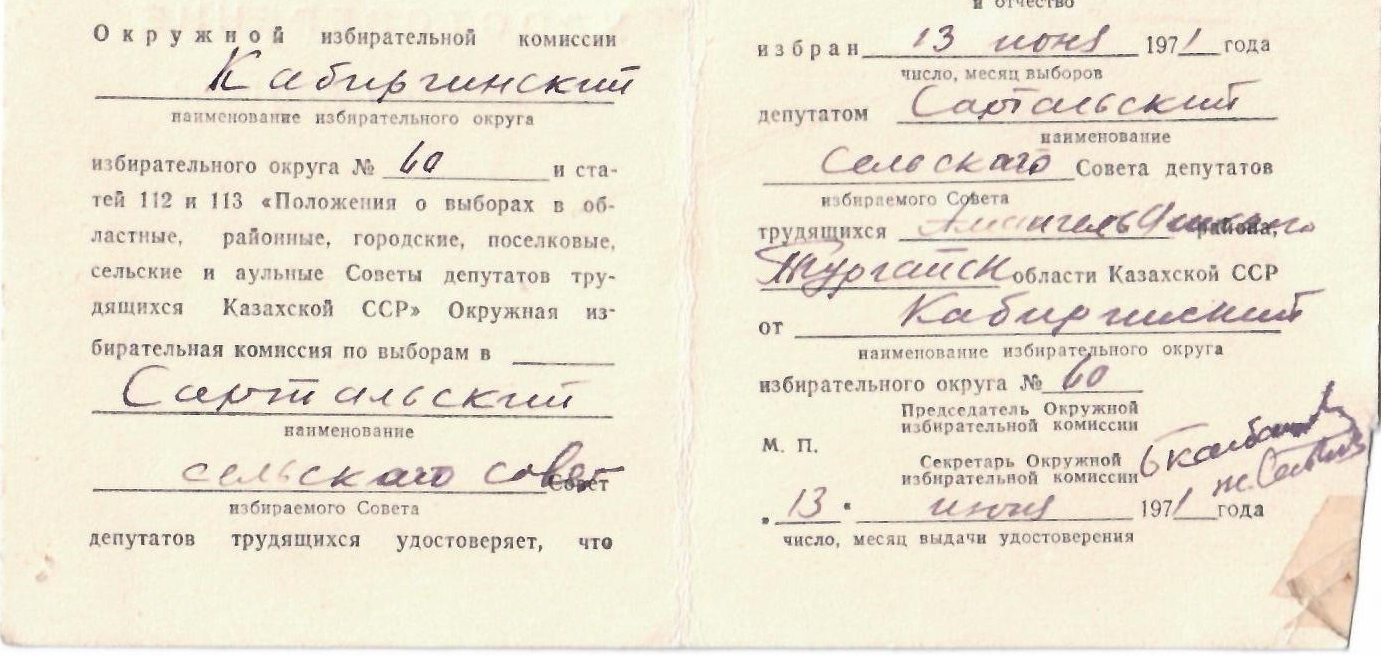 Окружной избирательной комиссии
Кабиргинский
наименование избирательного округа
избирательного округа № 60 и ста-
тей 112 и 113 «Положения о выборах в об-
ластные, районные, городские, поселковые,
сельские и аульные Советы депутатов тру-
дящихся Казахской ССР» Окружная из-
бирательная комиссия по выборам в
Сартальский
наименование
сельскаго совет Совет
избираемого Совета
депутатов трудящихся удостоверяет, что
и отчество
избран 13 июня 1971 года
число, месяц выборов
депутатом Сартальский
наименование
сельскаго Совета депутатов
избираемого Совета
трудящихся района,
Тургайск области Казахской ССР
от Кабиргинский
наименование избирательного округа
избирательного округа № 60
Председатель Окружной
избирательной комиссии
М. П.
Секретарь Окружной
избирательной комиссии
"13" июня 1971 года
число, месяц выдачи удостоверения